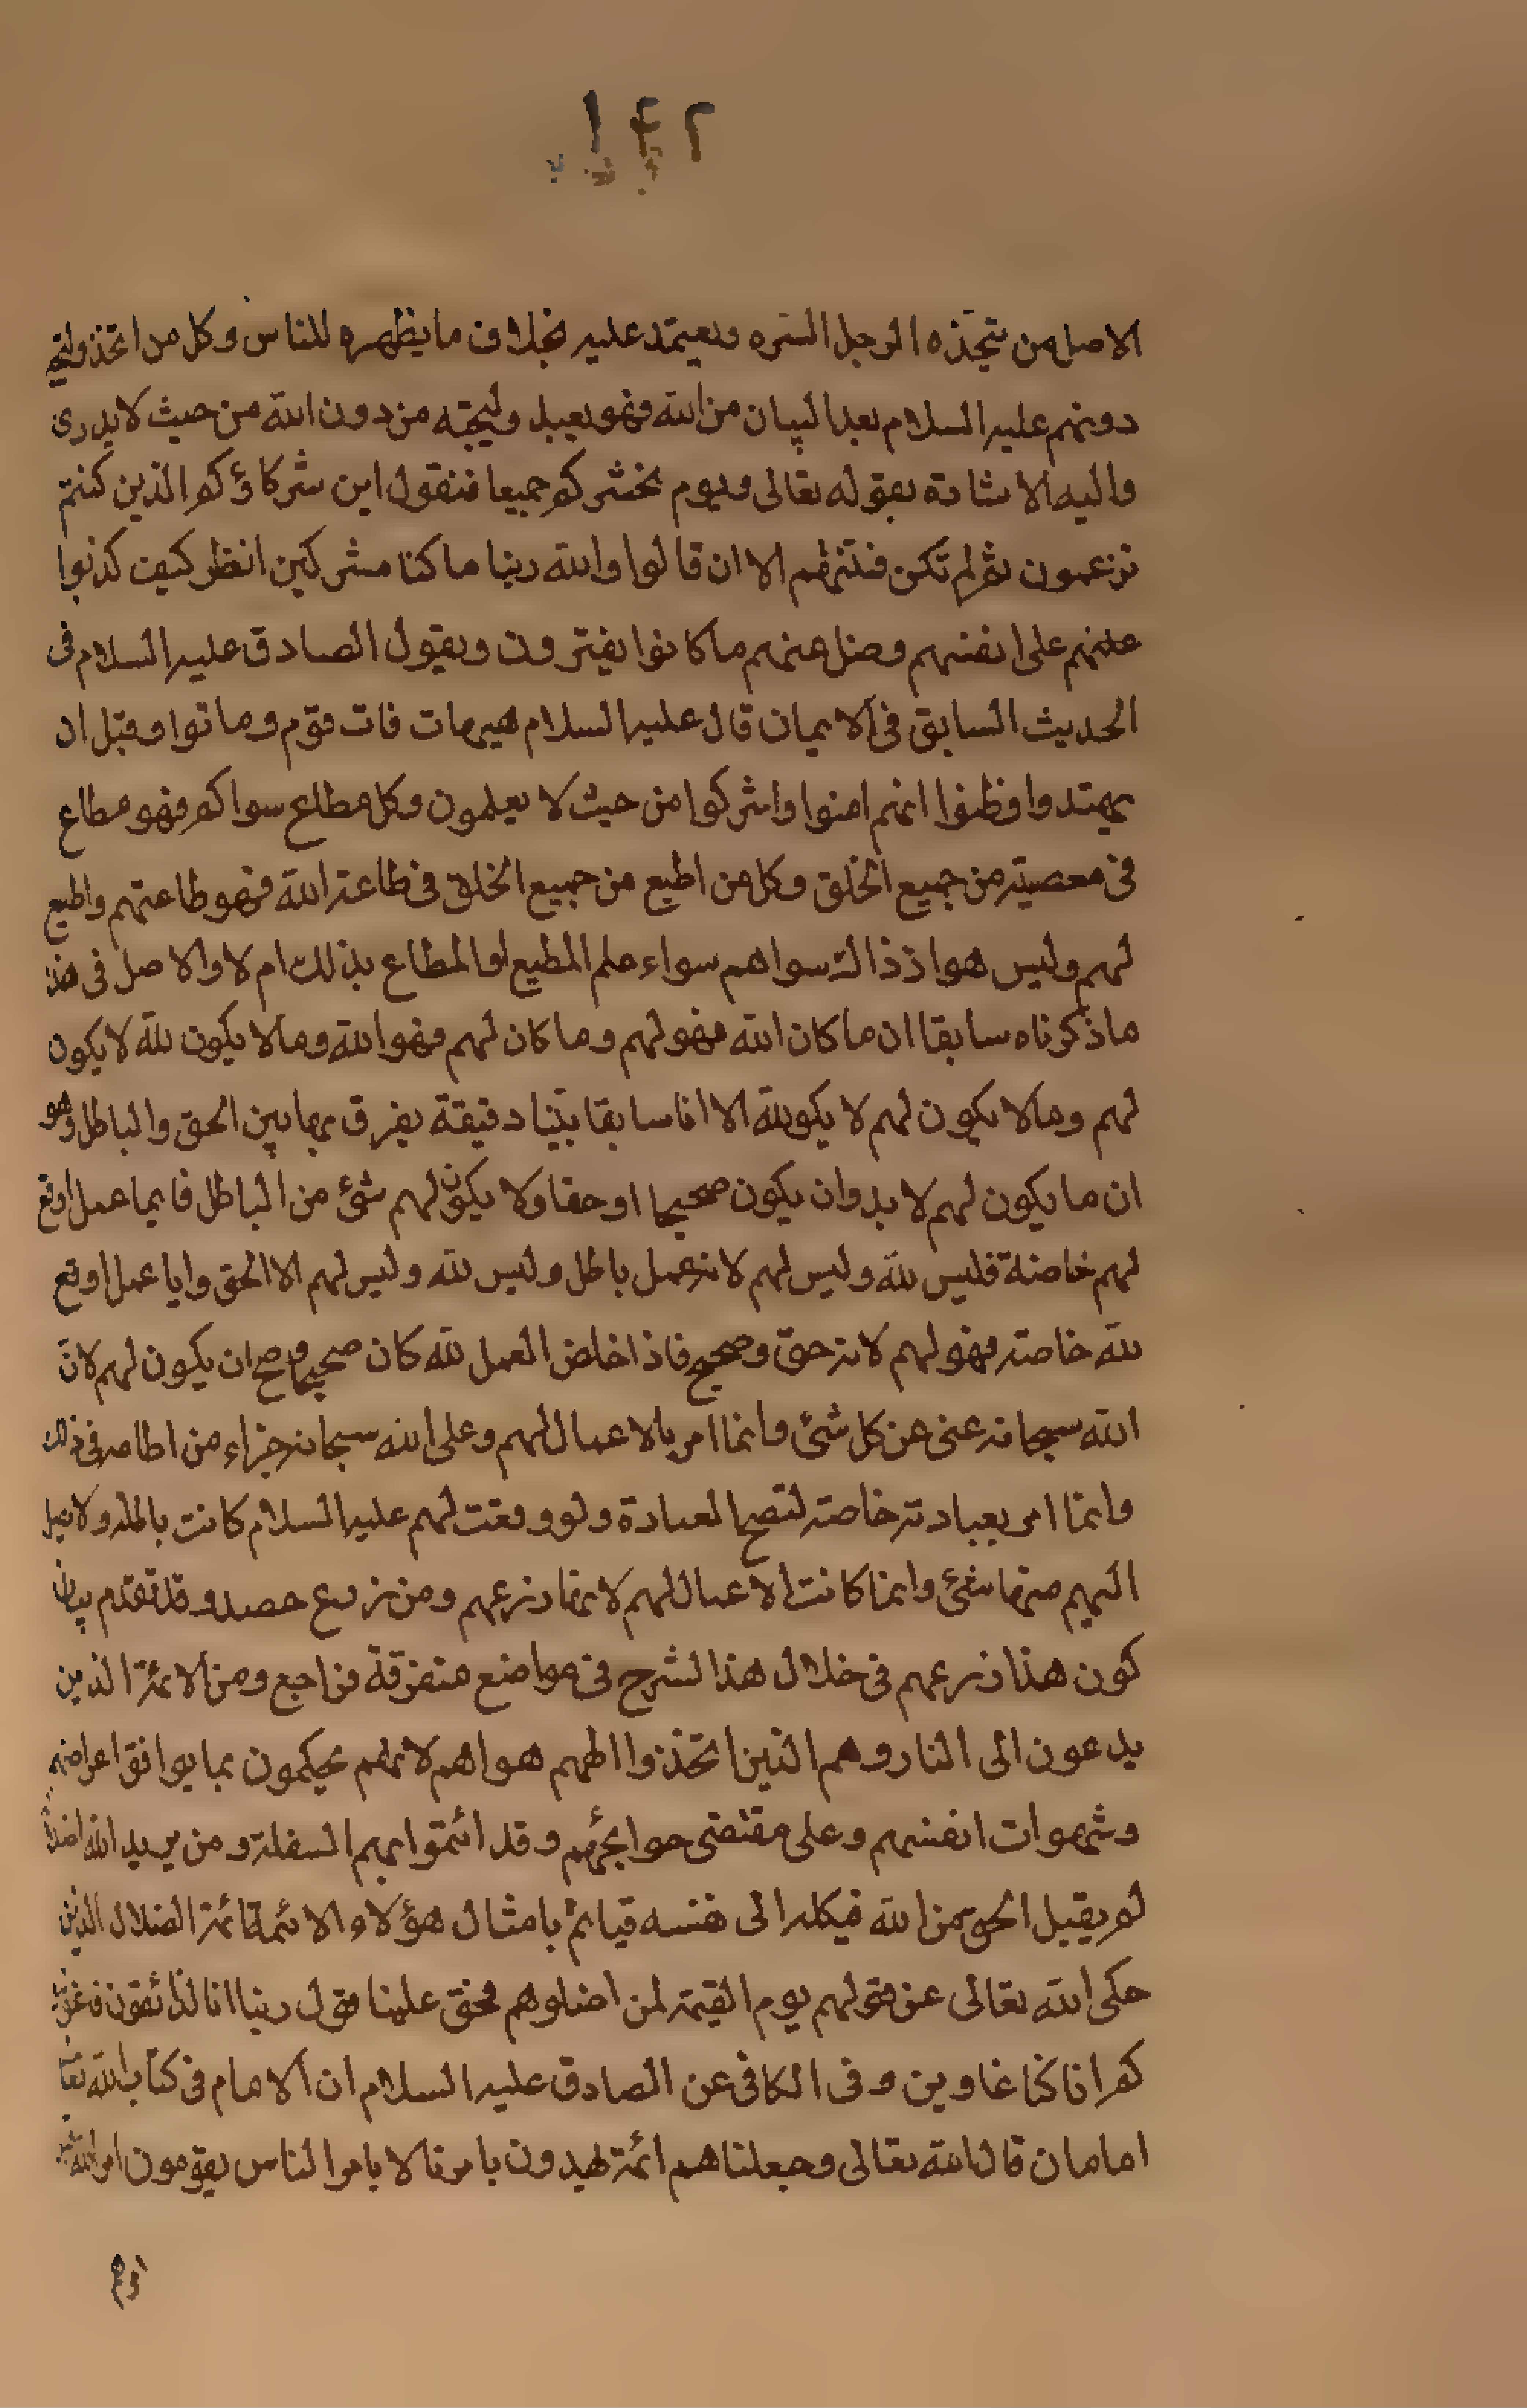 ١٤٢
الاصل من تتخذه الرجل السره ويعتمد عليه بخلاف ما يظهره للناس وكل من اتخذ وليجة
دونهم عليه السلام بعد البيان من الله فهو يعبد وليجته من دون الله من حيث لا يدرى
واليه الاشارة بقوله تعالى ويوم نحشركم جميعا فنقول اين شركاؤكم الذين كنتم
تزعمون ثم لم تكن فتنتهم الا ان قالوا والله ربنا ما كنا مشركين انظر كيف كذبوا
على انفسهم وضل عنهم ما كانوا يفترون ويقول الصادق عليه السلام فى
الحديث السابق فى الايمان قال عليه السلام هيهات فات قوم وماتوا وقبل ان
يهتدوا وظنوا انهم امنوا واشركوا من حيث لا يعلمون وكل مطاع سواكم فهو مطاع
فى معصيته من جميع الخلق وكل من اطيع من جميع الخلق فى طاعة الله فهو طاعتهم واطيع
لهم وليس هو اذ ذاك سواهم سواء علم المطيع او المطاع بذلك ام لا والاصل فى هذا
ما ذكرناه سابقا ان ما كان الله فهو لهم وما كان لهم فهو الله وما لا يكون لله لا يكون
لهم وما لا يكون لهم لا يكو لله الا انا سابقا بينا دقيقة يفرق بها بين الحق والباطل وهو
ان ما يكون لهم لا بد وان يكون صحيحا او حقا ولا يكون لهم شئ من الباطل فايما عمل اوقع
لهم خاصة فليس لله وليس لهم لانه عمل باطل وليس لله وليس لهم الا الحق وايا عمل اوقع
لله خاصة فهو لهم لانه حق وصحيح فاذا خلص العمل لله كان صحيحا وصح ان يكون لهم لان
الله سبحانه غنى عن كل شئ وانما امر بالاعمال لهم وعلى الله سبحانه جزاء من اطاعه فى ذلك
وانما امر بعبادته خاصة لتصح العبادة ولو وقعت لهم عليه السلام كانت باطلة ولا يصل
اليهم منها شئ وانما كانت الاعمال لهم لانها زرعهم ومن زرع حصد وقد تقدم بيان
كون هذا زرعهم فى خلال هذا الشرح فى مواضع متفرقة فراجع ومن الائمة الذين
يدعون الى النار وهم الذين اتخذوا الههم هواهم لانهم يحكمون بما يوافق اغراضهم
وشهوات انفسهم وعلى مقتضى حوائجهم وقد ائتموا بهم السفلة ومن يريد الله اضلاله
لم يقبل الحق من الله فيكله الى نفسه فياتم بامثال هؤلاء الائمة ائمة الضلال الذين
حكى الله تعالى عن قولهم يوم القيمة لمن اضلوهم فحق علينا قول ربنا انا لذائقون فاغوينا
كم انا كنا غاوين وفى الكافى عن الصادق عليه السلام ان الامام فى كتاب الله تعا
امامان قال الله تعالى وجعلناهم ائمة يهدون بامرنا لا بامر الناس يقومون امر الله